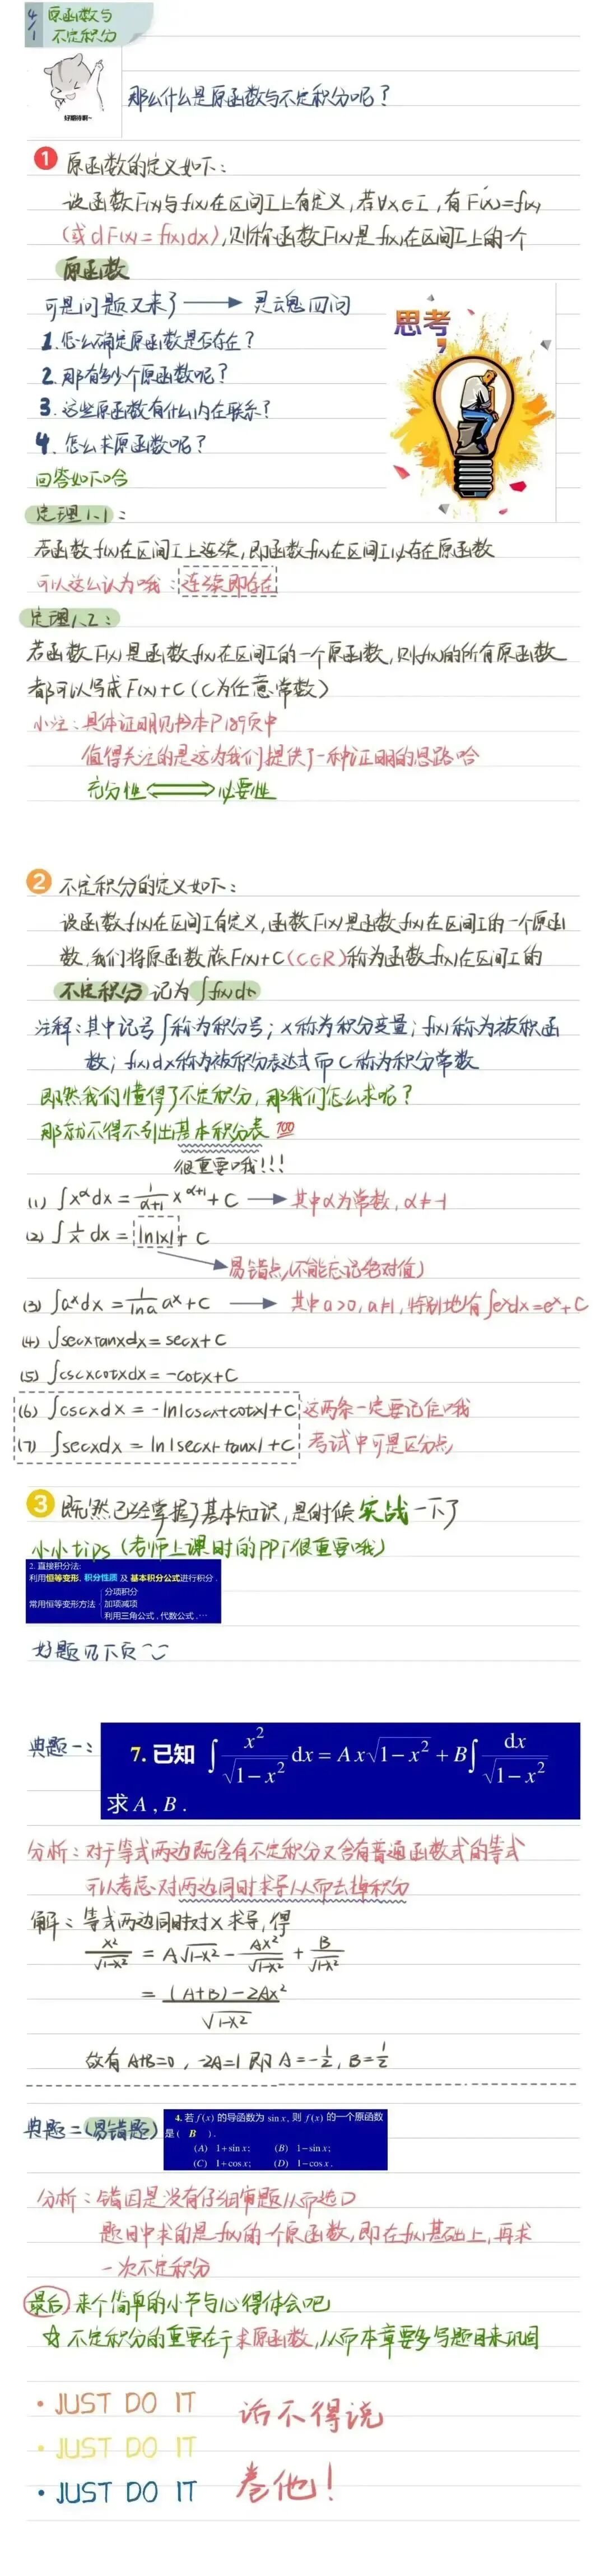 4/1 原函数与
不定积分
好期待啊~
那么什么是原函数与不定积分呢？
1 原函数的定义如下：
设函数F(x)与f(x)在区间I上有定义,若∀x∈I,有F'(x)=f(x)
(或dF(x)=f(x)dx),则称函数F(x)是f(x)在区间I上的一个
原函数
可是问题又来了→灵魂四问
思考,
1.怎么确定原函数是否存在？
2.那有多少个原函数呢？
3.这些原函数有什么内在联系？
4.怎么求原函数呢？
回答如下哈
定理1.1：
若函数f(x)在区间I上连续,即函数f(x)在区间I必存在原函数
可以这么认为哦：连续即存在
定理1.2：
若函数F(x)是函数f(x)在区间I的一个原函数,则f(x)的所有原函数
都可以写成F(x)+C(C为任意常数)
小注：具体证明见书本P189页中
值得关注的是这为我们提供了一种证明的思路哈
充分性⟺必要性
2 不定积分的定义如下：
设函数f(x)在区间I有定义,函数F(x)是函数f(x)在区间I的一个原函
数,我们将原函数族F(x)+C(C∈R)称为函数f(x)在区间I的
不定积分 记为∫f(x)dx
注解:其中记号∫称为积分号；x称为积分变量；f(x)称为被积函
数；f(x)dx称为被积分表达式而C称为积分常数
既然我们懂得了不定积分,那我们怎么求呢？
那就不得不引出基本积分表 100
很重要哦!!!
(1) ∫x^α dx = 1/(α+1) x^(α+1) + C → 其中α为常数,α≠-1
(2) ∫1/x dx = ln|x| + C
易错点(不能忘记绝对值)
(3) ∫a^x dx = 1/lna a^x + C → 其中a>0,a≠1,特别地有∫e^x dx=e^x+C
(4) ∫secxtanxdx = secx+C
(5) ∫cscxcotxdx = -cotx+C
(6) ∫cscxdx = -ln|cscx+cotx|+C 这两条一定要记住哦
(7) ∫secxdx = ln|secx+tanx|+C 考试中可是区分点
3 既然已经掌握了基本知识,是时候实战一下了
小小tips (老师上课时的PPT很重要哦)
2. 直接积分法:
利用恒等变形, 积分性质 及 基本积分公式进行积分 .
分项积分
常用恒等变形方法 加项减项
利用三角公式 , 代数公式 , ⋯
好题见下页
典题一：
7. 已知 ∫ x²/√(1−x²) dx = A x√(1−x²) + B∫ dx/√(1−x²)
求 A , B .
分析：对于等式两边既含有不定积分又含有普通函数式的等式
可以考虑对两边同时求导从而去掉积分
解：等式两边同时对x求导,得
x²/√(1-x²) = A√(1-x²) - Ax²/√(1-x²) + B/√(1-x²)
= ((A+B)-2Ax²)/√(1-x²)
故有 A+B=0 , -2A=1 即 A=-1/2, B=1/2
典题二(易错题)
4. 若 f(x) 的导函数为 sin x, 则 f(x) 的一个原函数
是 ( B ) .
(A) 1+sin x; (B) 1−sin x;
(C) 1+cos x; (D) 1−cos x .
分析：错因是没有仔细审题从而选D
题目中求的是f(x)的一个原函数,即在f(x)基础上,再求
一次不定积分
最后 来个简单的小节与心得体会吧
☆ 不定积分的重要在于求原函数,从而本章要多写题目来巩固
• JUST DO IT
• JUST DO IT
• JUST DO IT
话不得说
卷他！